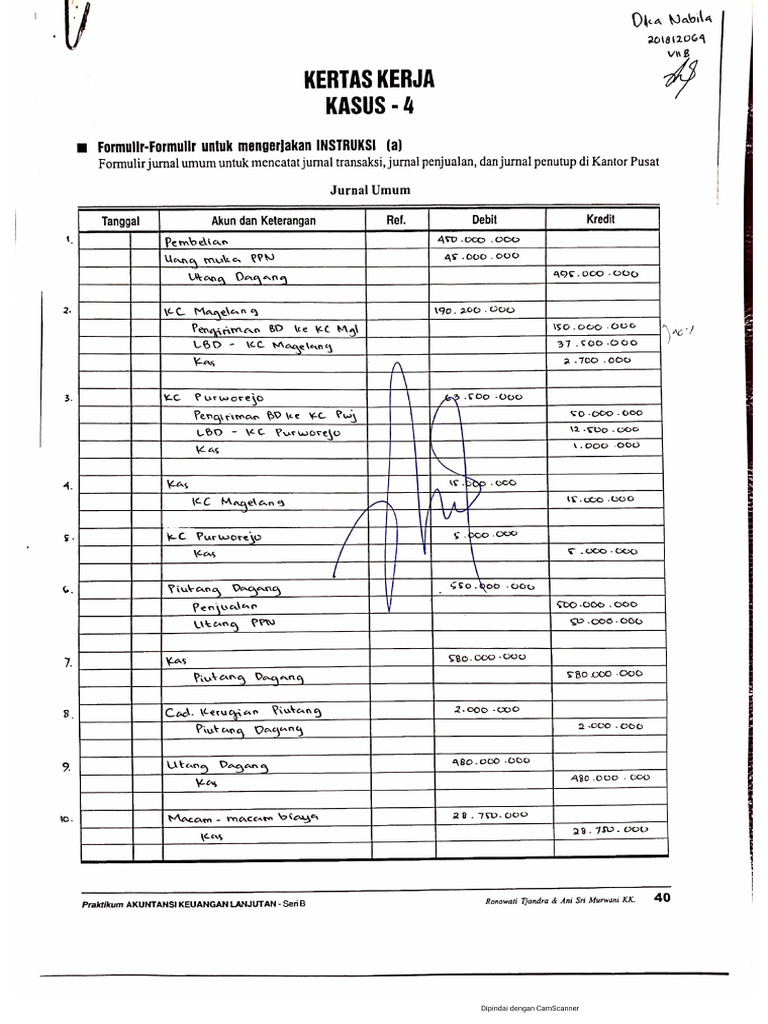 Dka Nabila
201812069
VII B
KERTAS KERJA
KASUS - 4
■ Formulir-Formulir untuk mengerjakan INSTRUKSI (a)
Formulir jurnal umum untuk mencatat jurnal transaksi, jurnal penjualan, dan jurnal penutup di Kantor Pusat
Jurnal Umum
Tanggal Akun dan Keterangan Ref. Debit Kredit
1. Pembelian 450.000.000
Uang muka PPN 45.000.000
Utang Dagang 495.000.000
2. KC Magelang 190.200.000
Pengiriman BD ke KC Mgl 150.000.000
LBD - KC Magelang 37.500.000
Kas 2.700.000
3. KC Purworejo 63.500.000
Pengiriman BD ke KC Pwj 50.000.000
LBD - KC Purworejo 12.500.000
Kas 1.000.000
4. Kas 15.000.000
KC Magelang 15.000.000
5. KC Purworejo 5.000.000
Kas 5.000.000
6. Piutang Dagang 550.000.000
Penjualan 500.000.000
Utang PPN 50.000.000
7. Kas 580.000.000
Piutang Dagang 580.000.000
8. Cad. Kerugian Piutang 2.000.000
Piutang Dagang 2.000.000
9. Utang Dagang 480.000.000
Kas 480.000.000
10. Macam - macam biaya 28.750.000
Kas 28.750.000
Praktikum AKUNTANSI KEUANGAN LANJUTAN - Seri B Ronowati Tjandra & Ani Sri Murwani KK. 40
Dipindai dengan CamScanner